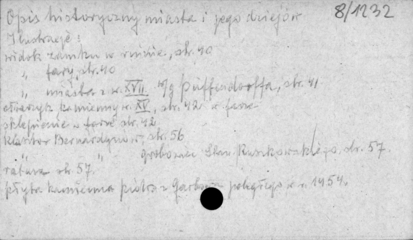 Opis historyczny miasta i jego dziejów 8/1232
Ilustracje:
widok zamku w ruinie, str. 40
" fary, str. 40
" miasta z w. XVII w/g Puffendorffa, str. 41
kamienny w. XV, str. 42 w farze
sklepienie w farze str. 42
klasztor Bernardynów, str. 56
" " grobowiec Stan. Ruszkowskiego, str. 57.
ratusz str. 57.
płyta kamienna Piotra z poległego w r. 1454.